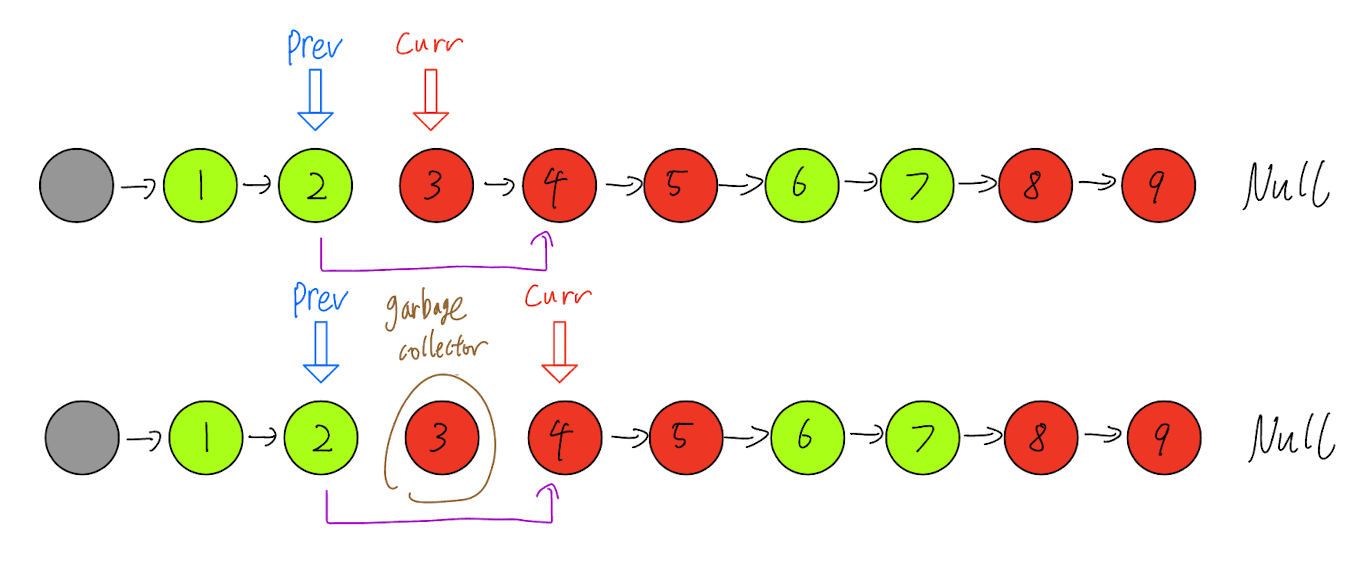 Prev Curr
1 2 3 4 5 6 7 8 9 Null
Prev garbage collector Curr
1 2 3 4 5 6 7 8 9 Null